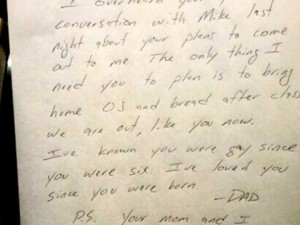 I overheard your
conversation with Mike last
night about your plans to come
out to me The only thing I
need you to plan is to bring
home OJ and bread after class
we are out, like you now.
Ive known you were gay since
you were six. I've loved you
since you were born
- DAD
P.S. Your mom and I